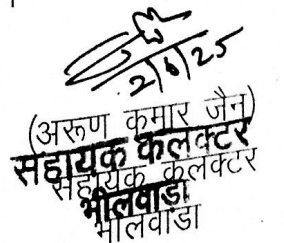 2/6/25
(अरूण कुमार जैन)
सहायक कलक्टर
सहायक कलक्टर
भीलवाड़ा
भीलवाड़ा